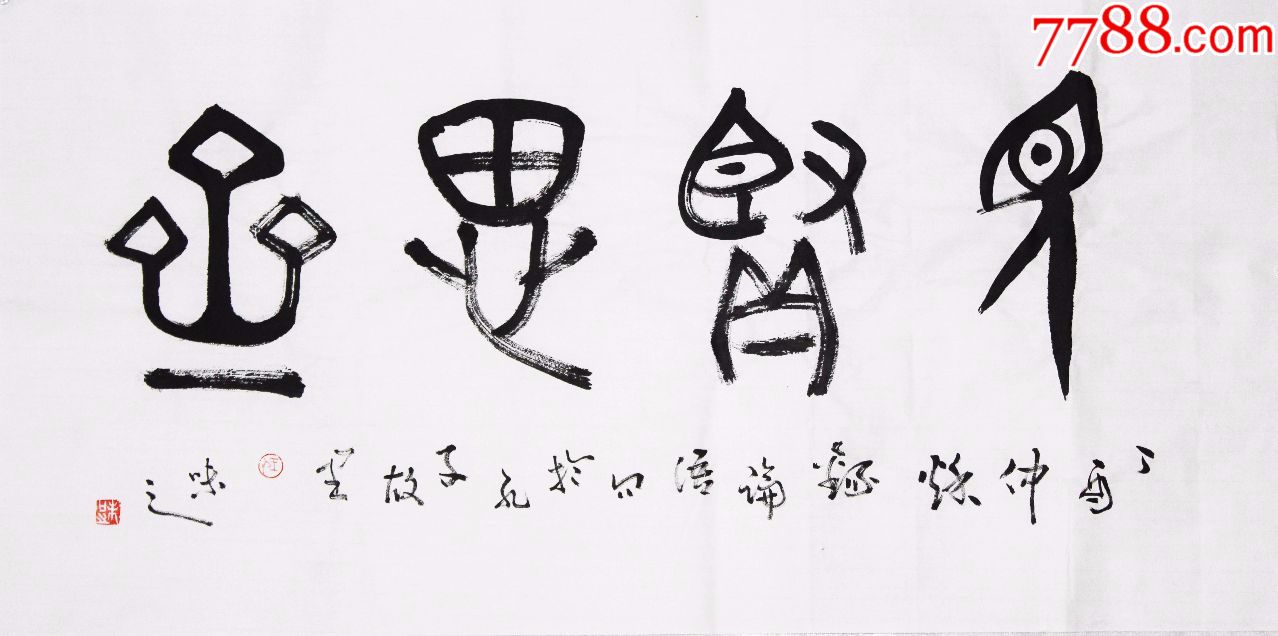 7788.com
見賢思齊
丁酉仲秋錄論語句於孔子故里
味之